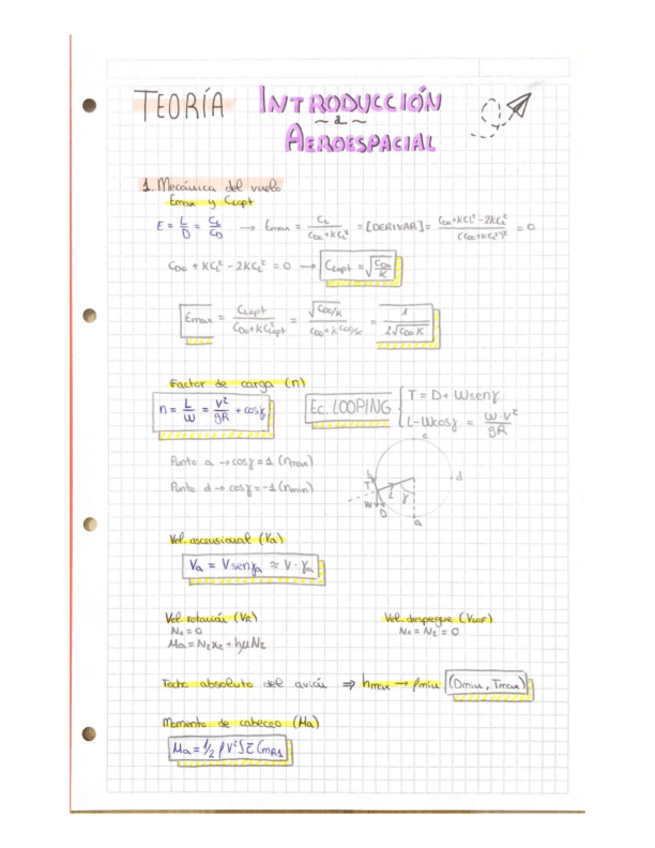 TEORÍA INTRODUCCIÓN
~ a ~
AEROESPACIAL
1. Mecánica del vuelo
Emax y CLopt
E = L/D = CL/CD → Emax = CL/(CD0+KCL²) = [DERIVAR] = (CD0+KCL²-2KCL²)/(CD0+KCL²)² = 0
CD0 + KCL² - 2KCL² = 0 → CLopt = √(CD0/K)
Emax = CLopt/(CD0+KCL²opt) = √(CD0/K)/(CD0+K CD0/K) = 1/(2√(CD0 K))
Factor de carga (n)
n = L/W = V²/gR + cosγ
Ec. LOOPING { T = D + Wsenγ
L-Wcosγ = W·V²/gR
Punto a → cosγ = 1 (nmax)
Punto d → cosγ = -1 (nmin)
c
b
d
T
L
γ
W
D
a
Vel. ascensional (Va)
Va = V senγa ≈ V · γa
Vel. rotación (VR)
N1 = 0
Ma = N2x2 + hμN2
Vel. despegue (VLOF)
N1 = N2 = 0
Techo absoluto del avión ⇒ hmax → ρmin (Dmin, Tmax)
Momento de cabeceo (Ma)
Ma = 1/2 ρV²S